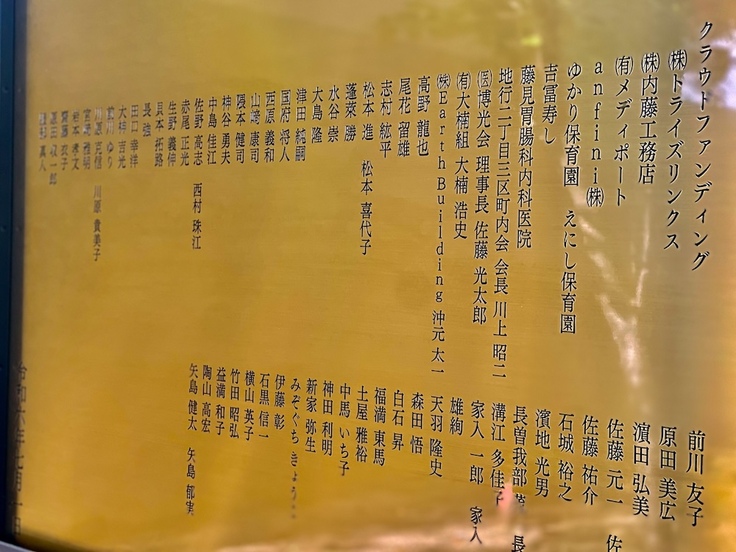 クラウトファンディング
㈱トライズリンクス
㈱内藤工務店
㈲メディポート
anfini㈱
ゆかり保育園 えにし保育園
吉冨寿し
藤見胃腸科内科医院
地行二丁目三区町内会 会長 川上 昭二
㈩博光会 理事長 佐藤 光太郎
㈲大楠組 大楠 浩史
㈱EarthBuilding 沖元 太一
高野 龍也
尾花 留雄
志村 紘平
松本 進 松本 喜代子
蓬莱 勝
水谷 崇
大島 隆
津田 純嗣
国府 将人
西原 義和
山﨑 康司
隈本 健司
神谷 勇夫
中島 佳江
佐野 高志 西村 珠江
赤尾 正光
生野 義伸
貝本 拓路
長 強
田口 幸洋
前川 友子
原田 美広
濵田 弘美
佐藤 元一 佐
佐藤 祐介
石城 裕之
濱地 光男
長曽我部 長
溝江 多佳子
家入 一郎 家入
雄絢
天羽 隆史
森田 悟
白石 昇
福満 東馬
土屋 雅裕
中馬 いち子
神田 利明
新家 弥生
みぞぐち きょう
伊藤 彰
石黒 信一
横山 英子
竹田 昭弘
益満 和子
陶山 高宏
矢島 健太 矢島 郁実